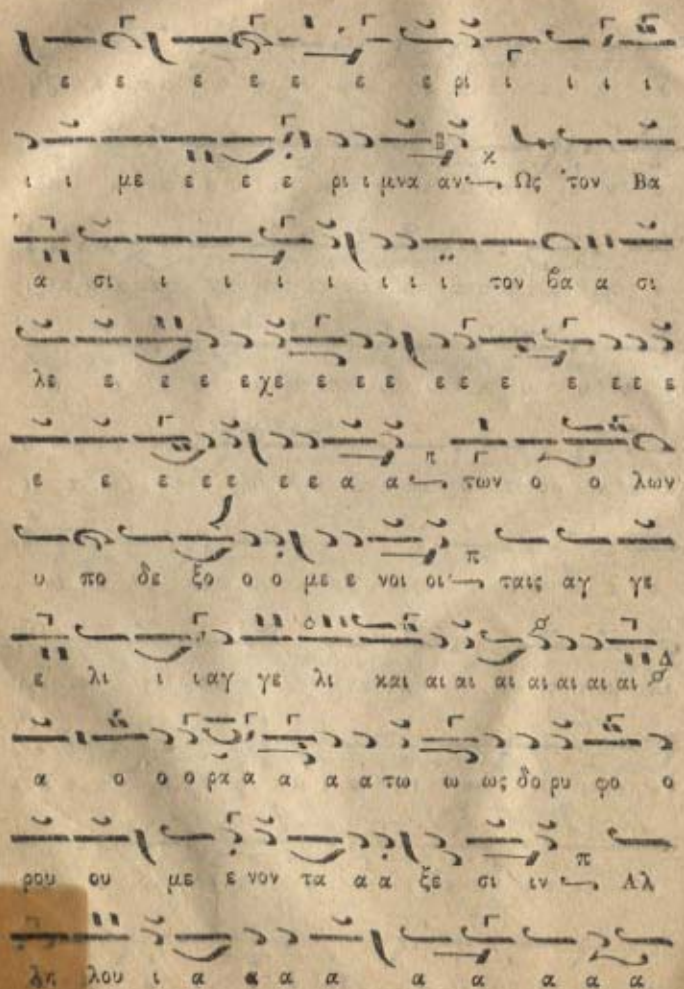 ε ε ε ε ε ε ε ρι ι ι ι ι
ι ι με ε ε ε ρι ι μνα αν Ως τον Βα
α σι ι ι ι ι ι ι ι τον βα α σι
λε ε ε ε ε χε ε ε ε ε ε ε ε ε ε ε
ε ε ε ε ε ε ε α α των ο ο λων
υ πο δε ξο ο ο με ε νοι οι ταις αγ γε
ε λι ι ι αγ γε λι και αι αι αι αι αι αι αι
α ο ο ο ρα α α α α τω ω ως δο ρυ φο ο
ρου ου με ε νον τα α α ξε σι ιν Αλ
λη λου ι α α α α α α α α α